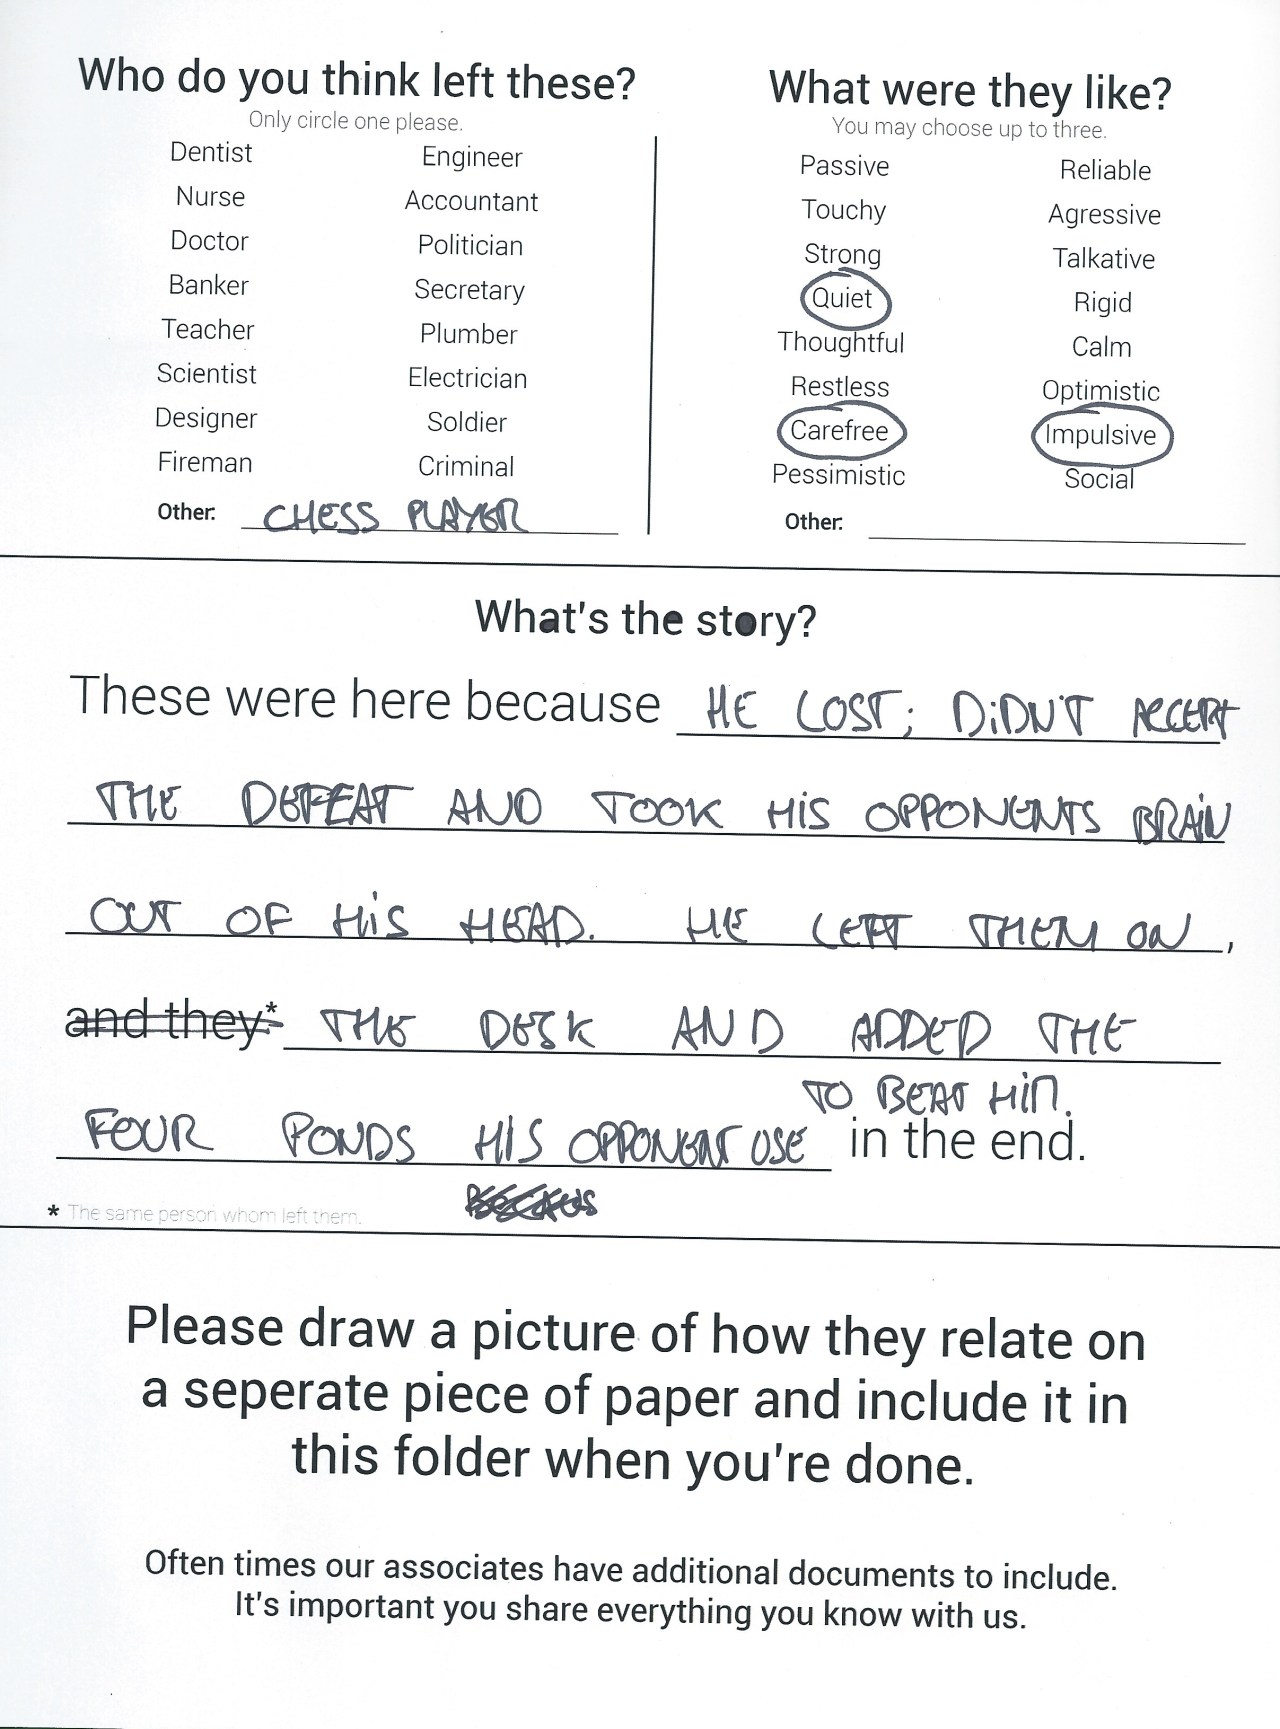 Who do you think left these?
Only circle one please.
Dentist
Nurse
Doctor
Banker
Teacher
Scientist
Designer
Fireman
Engineer
Accountant
Politician
Secretary
Plumber
Electrician
Soldier
Criminal
Other: CHESS PLAYER
What were they like?
You may choose up to three.
Passive
Touchy
Strong
Quiet
Thoughtful
Restless
Carefree
Pessimistic
Reliable
Agressive
Talkative
Rigid
Calm
Optimistic
Impulsive
Social
Other:
What's the story?
These were here because HE LOST; DiDN'T ACCEPT
THE DEFEAT AND TOOK HiS OPPONENTS BRAiN
OUT OF HiS HEAD. HE LEFT THEM ON ,
and they* THE DESK AND ADDED THE
TO BEAT HiM.
FOUR PONDS HIS OPPONENT USE in the end.
* The same person whom left them.
Please draw a picture of how they relate on
a seperate piece of paper and include it in
this folder when you're done.
Often times our associates have additional documents to include.
It's important you share everything you know with us.